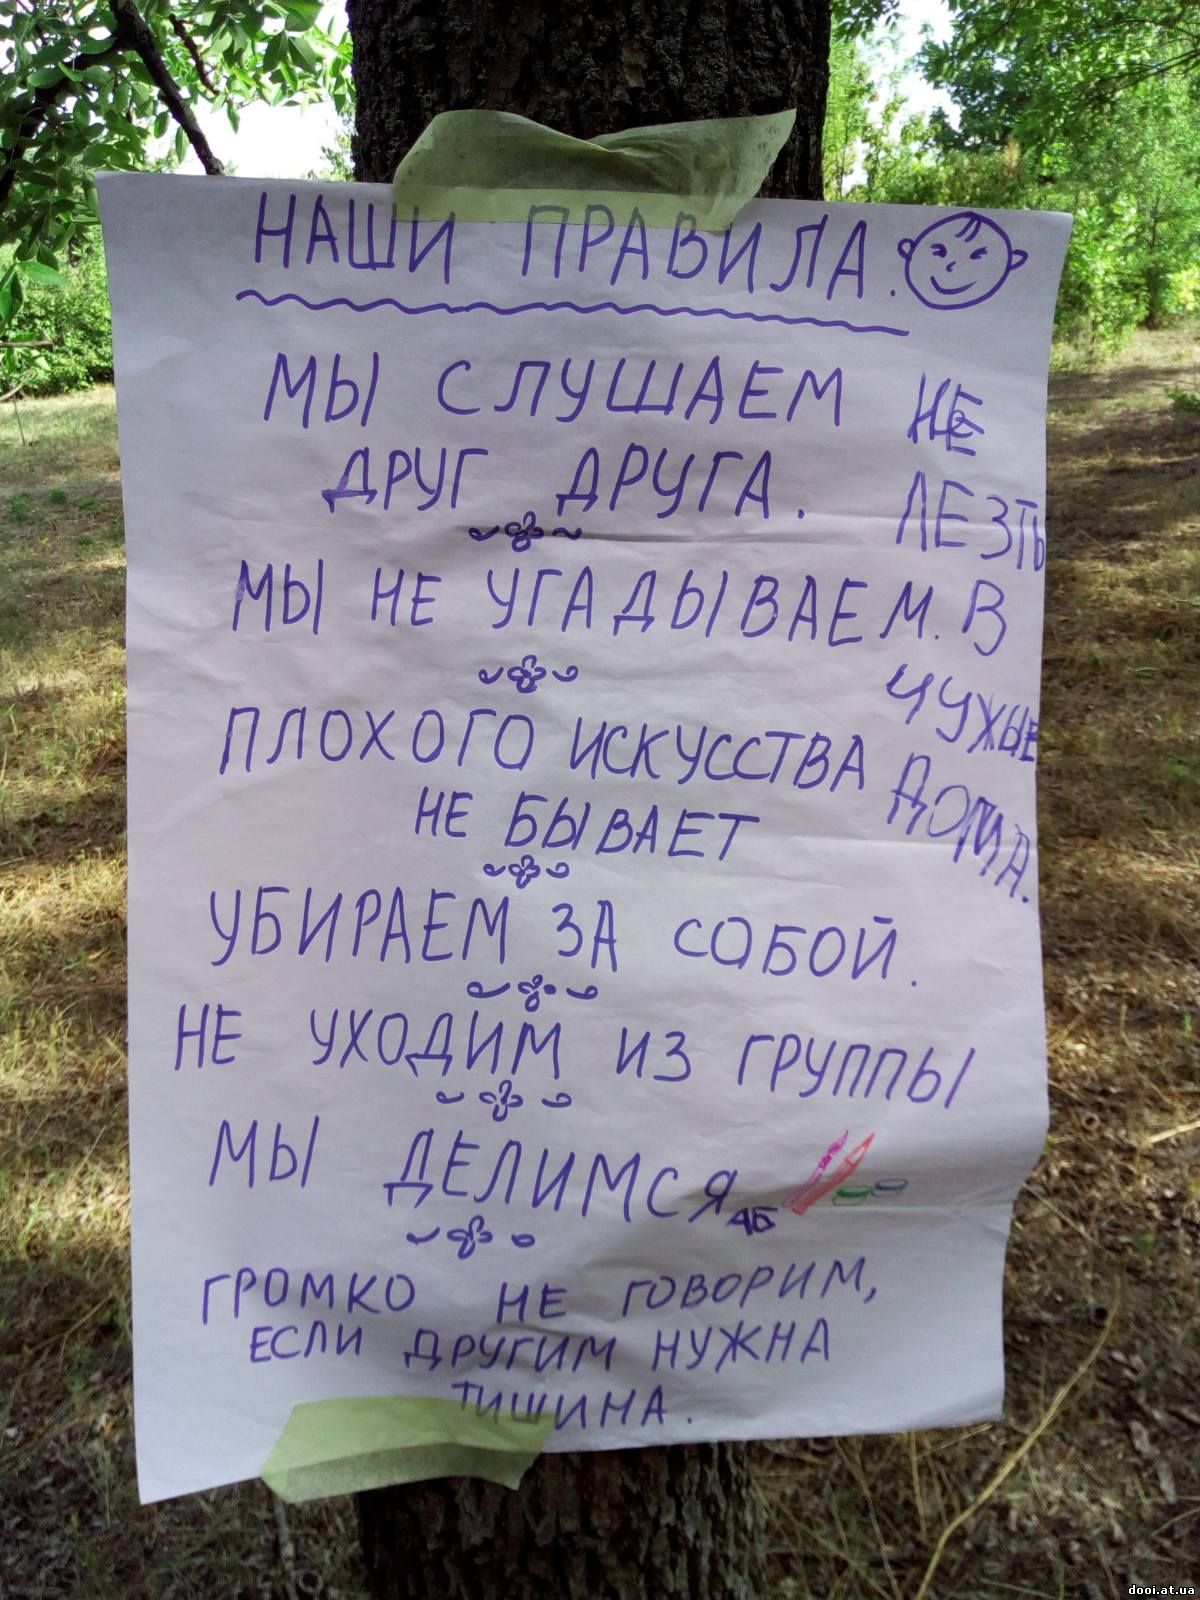 НАШИ ПРАВИЛА.
МЫ СЛУШАЕМ
ДРУГ ДРУГА.
МЫ НЕ УГАДЫВАЕМ.
ПЛОХОГО ИСКУССТВА
НЕ БЫВАЕТ
УБИРАЕМ ЗА СОБОЙ.
НЕ УХОДИМ ИЗ ГРУППЫ
МЫ ДЕЛИМСЯ
АБ
ГРОМКО НЕ ГОВОРИМ,
ЕСЛИ ДРУГИМ НУЖНА
ТИШИНА.
НЕ
ЛЕЗТЬ
В
ЧУЖЫЕ
ДОМА.
dooi.at.ua